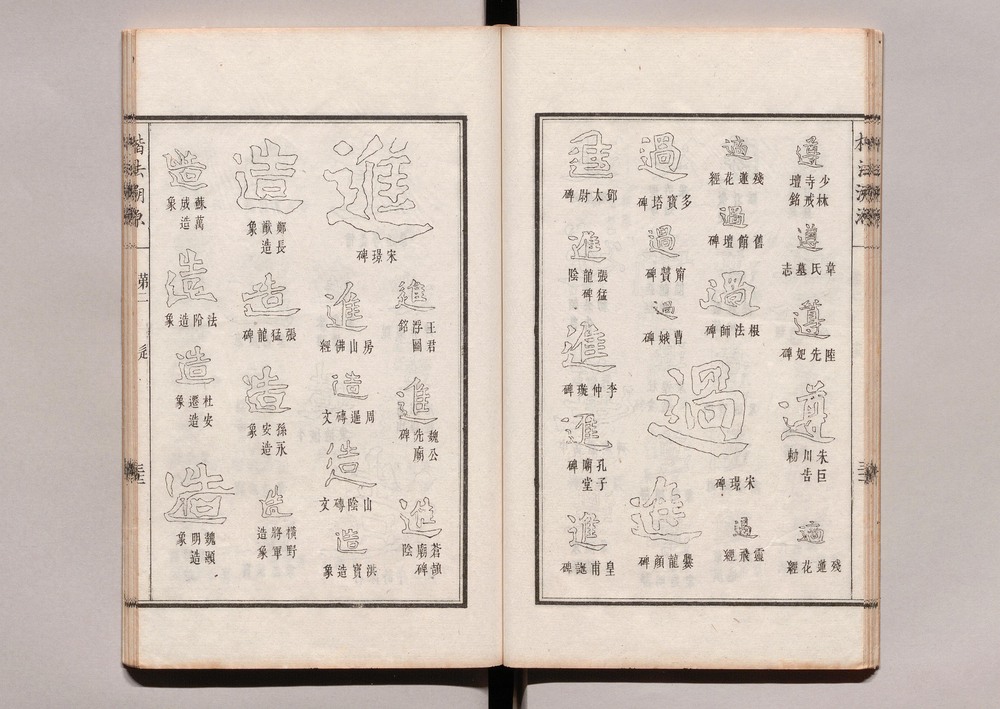 遵
少林寺戒壇銘
遵
韋氏墓志
遵
陸先妃碑
遵
朱巨川告勅
適
殘蓮花經
適
殘蓮花經
過
舊館壇碑
過
根法師碑
過
宋璟碑
過
靈飛經
過
多寶塔碑
過
甯贊碑
過
曹娥碑
進
爨龍顏碑
進
鄧太尉碑
進
張猛龍碑陰
進
李仲璇碑
進
孔子廟堂碑
進
皇甫誕碑
進
宋璟碑
進
王君浮圖銘
進
魏公先廟碑
進
蒼頡廟碑陰
進
房山佛經
造
周暹磚文
造
山陰磚文
造
洪寶造象
造
鄭長猷造象
造
張猛龍碑
造
孫永安造象
造
橫野將軍造象
造
蘇萬成造象
造
法阾造象
造
杜安遷造象
造
魏顯明造象
楷法溯源
第二
辵